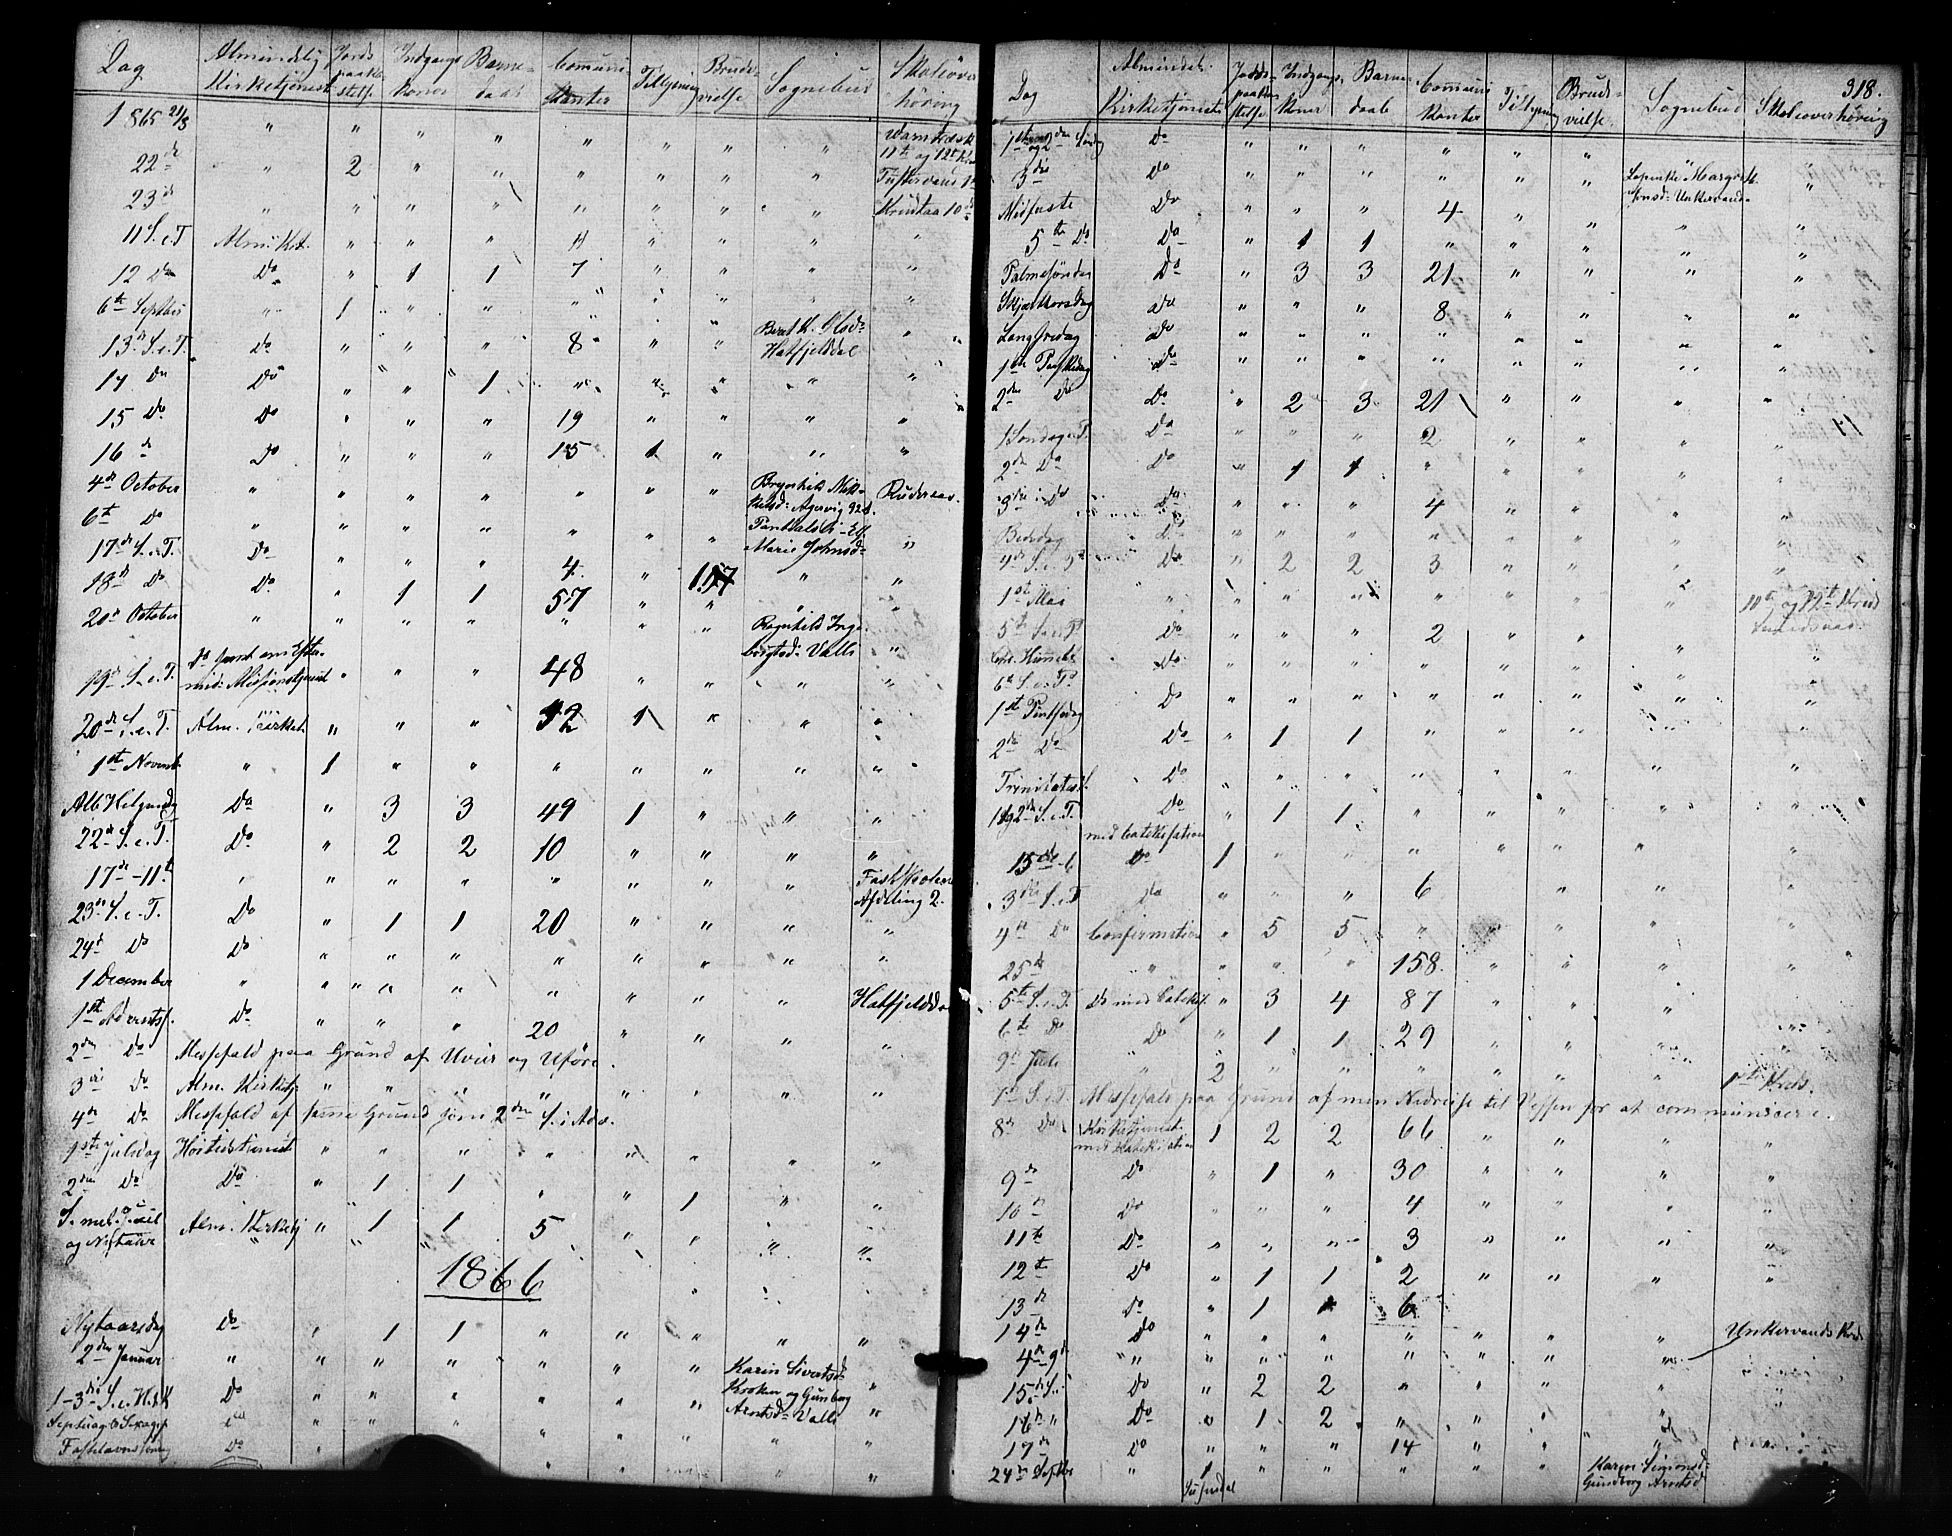 Dag Almindelig Kirketjeneste Jords paaka stelse Indgangs koner Barne- daab Communi- kanter Tillysning Brude- vielse Sognebud Skoleover höring
1865 21/8 " " " " " " " "
11te og 12te
22de " 2 " " " " " "
23de " " " " " " " " 10de
11 S. e. T. Alm. Kt. " " " 4 " " " "
12 Do Do " 1 1 7 " " " "
6te Septber " 1 " " " " " "
13de S. e. T. Do " " " 8 " " Berit K. Olsd: Hatfjelddal "
14 Do Do " " 1 " " " " "
15 Do Do " " " 19 " " " "
16 d Do " " " 15 1 " " "
4de October " " " " " " " Brynhild Mik- kelsd: Agervig 92 A.
6te Do " " " " " " "
17de S. e. T. Do " " " 4 " Marie Johnsd: "
18de Do Do " 1 1 57 " " " "
20de October " " " " " " " Ragnhild Inge- brigtsd: Valli "
19de S. e. T. Do samt om Efter- mid: Missionstjenest " " " 48 " " " "
20de S. e. T. Alm. Kirket. " " " 12 1 " " "
1ste Novemb. " 1 " " " " " " "
Alle Helgensdg Do " 3 3 49 1 " " "
22de S. e. T. Do " 2 2 10 " " " "
17de-11te " " " " " " " " Fast Skolens Afdeling 2.
23de S. e. T. Do " 1 1 20 " " " "
24d Do Do " " " " " " " "
1 December " " " " " " " " Hatfjelddal
1ste Adventss. Do " " " 20 " " " "
2den Do Messefald paa Grund af Uveir og Uföre.
3die Do Alm. Kirketj. " " " " " " " "
4de Do Messefald af samme Grund som 2den S. i Adv.
1ste Juledag Höitidstjenest " " " " " " " "
2den Do Do " 1 1 " " 1 " "
S. mel. Juul og Nytaar Alm. Kirketj " 1 1 5 " " " "
1866
Nytaarsdag Do " 1 1 " " " " "
2den Januar " " " " " " " Karin Sivertsd: Kroken og Gunborg Arntsd: Valli "
1-3die S. e. H. 3 K Do " " " " " " "
Septuag & Sexages Do " " "
Fastelavnssöndag Do " " " " " "
318.
Dag Almindel. Kirketjeneste Jords- paaka stelse Indgangs- koner Barne- daab Communi kanter Tillysning Brude- vielse Sognebud Skoleoverhöring
1ste og 2den Söndag Do " " " " " "
3die Do " " " " " " Margrethe Jonsd: Unkervand "
Midfaste Do " " " 4 " " " "
5te Do Do " 1 1 " " " " "
Palmesöndag Do " 3 3 21 " " " "
Skjærthorsdag Do " " " 8 " " " "
Langfredag Do " " " " " " " "
1ste Paaskedag Do " " " " " " " "
2den Do Do " 2 3 21 " " " "
1 Söndag e. P. Do " " " 2 " " " "
2den Do Do " 1 1 " " " " "
3die Do Do " " " 4 " " " "
Bededag Do " " " " " " " "
4de S. e. P. Do " 2 2 3 " " " "
1ste Mai " " " " " " " " 10de og 12te Kreds
5te S. e. P. Do " " " 2 " " "
Chr. Himmelf. Do " " " " " " " "
6te S. e. P.
1ste Pintsedag Do " " " " " " " "
2den Do Do " 1 1 " " " " "
Trinitatis S. Do " " " " " " " "
1 og 2den S. e. T. Do med Catekisation " 1 1 " " " " "
15de-6 Do 1 " " " " " " "
3die S. e. T Do " " " 6 " " " "
4de Do Confirmation " 5 5 " " " " "
25de " " " " 158. " " " "
5te S. e. T. Do med Catekis. " 3 4 87 " " " "
6te Do Do " 1 1 29 " " " "
9de Juli " 2 " " " " " " 1ste Kreds.
7de S. e. T. Messefald paa Grund af min Nedreise til Vefsen for at communicere.
8de Do Kirketjenest med Katekisation 1 2 2 66 " " " "
9de Do " 1 " 30 " " " "
10de Do " " " 4 " " " "
11te Do " " " 3 " " " "
12te Do " 1 1 2 " " " "
13de Do " 1 1 6
14de Do " " " " " " " Unkervands Kreds
4de 9d " " " " " " " "
15de S. Do " 2 2 " " " " "
16de " Do " 1 2 " " " "
17de Do " " " 14 " " "
24de Septbr " 1 " " " " " Karen Simonsd: Gundborg Arntsd
Susendal